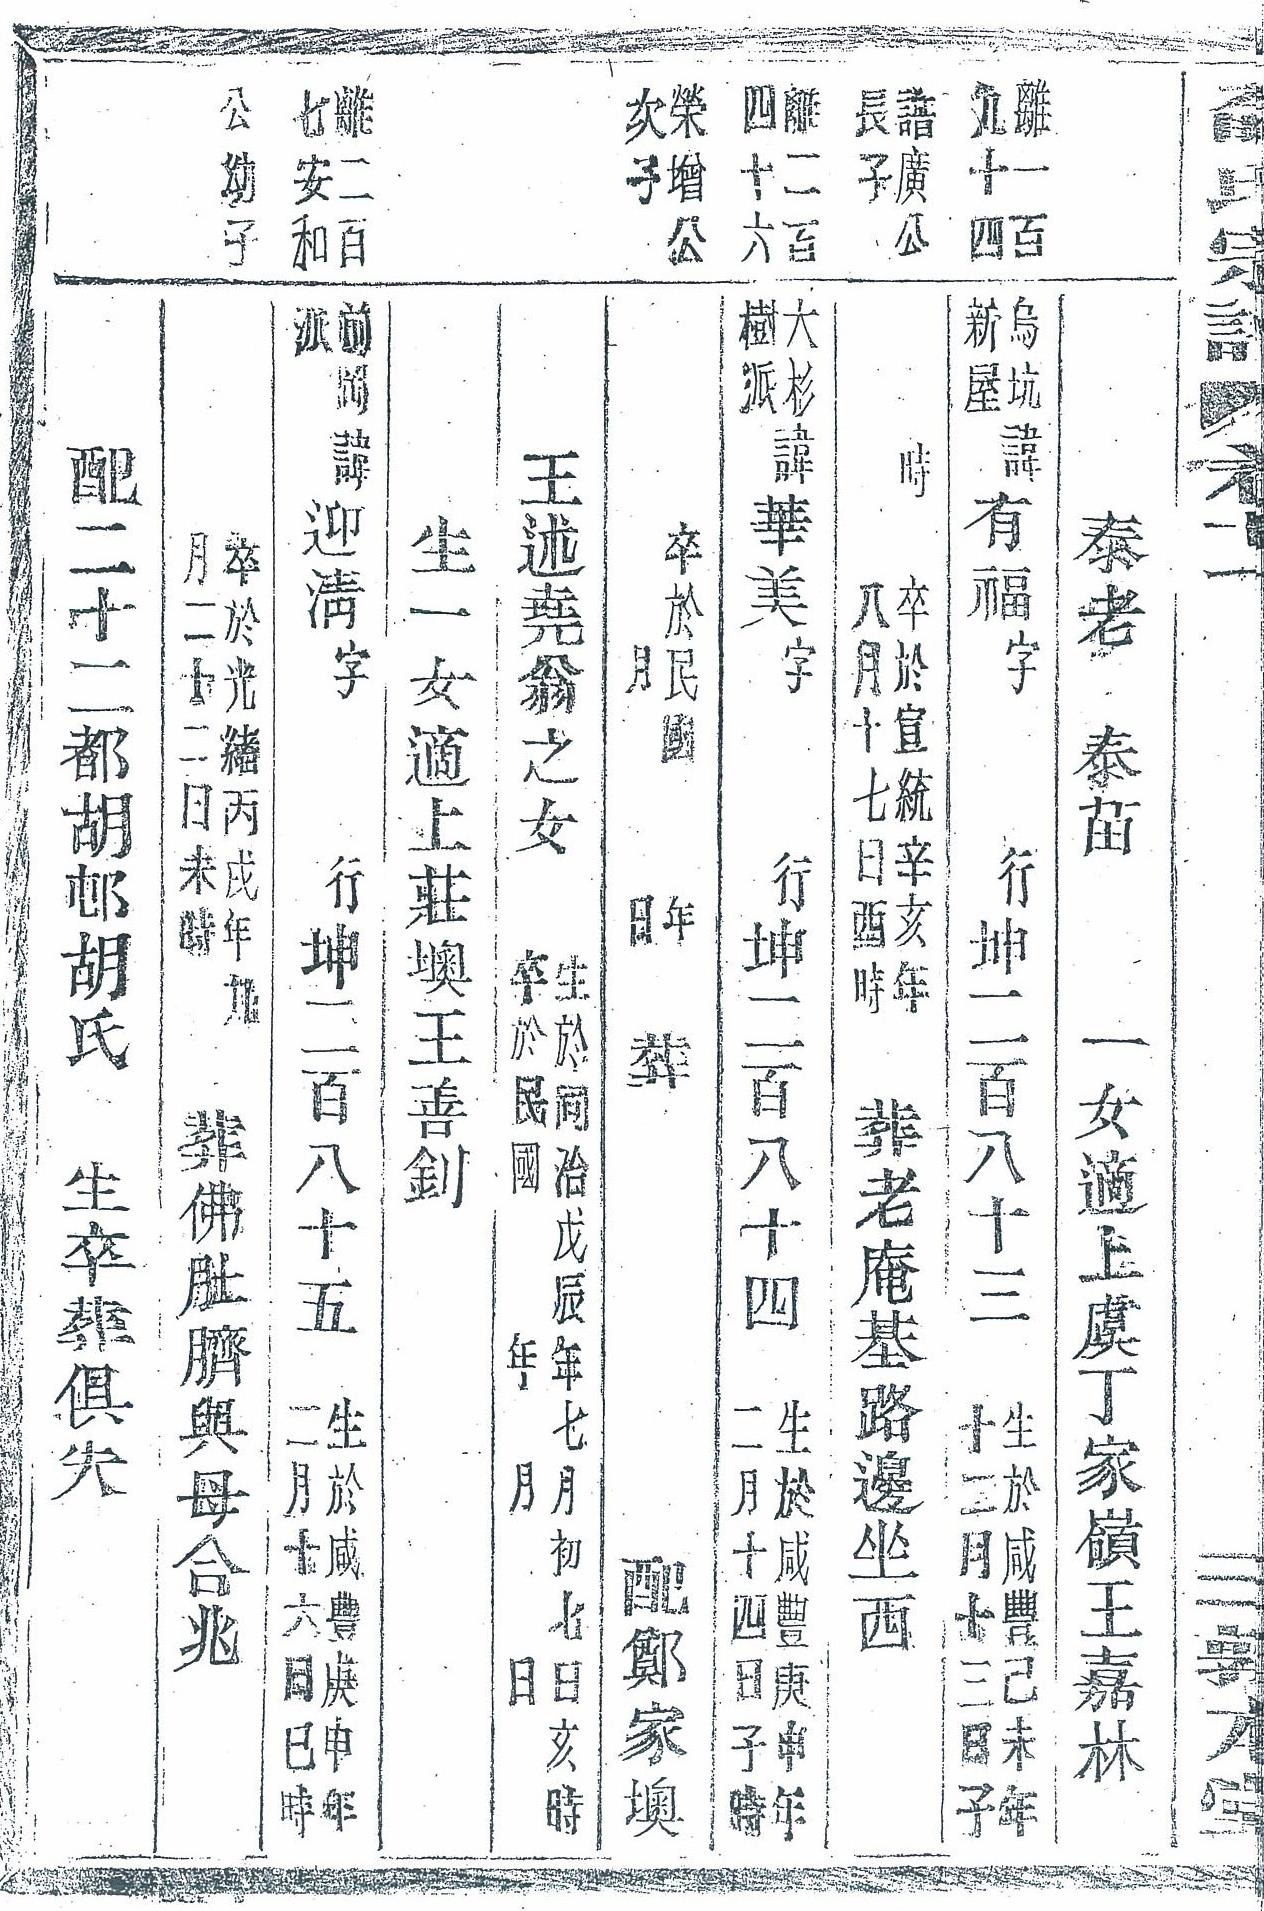 氏宗譜 卷二
泰老 泰苗 一女適上虞丁家嶺王嘉林
離一百
九十四
烏坑
新屋
諱有福字 行坤二百八十三
生於咸豐己未年
十二月十三日子
譜廣公
長子
時
卒於宣統辛亥年
八月十七日酉時
葬老庵基路邊坐西
離二百
四十六
大杉
樹派
諱華美字 行坤二百八十四
生於咸豐庚申年
二月十四日子時
榮增公
次子
卒於民國 年
月 日
葬 配鄭家墺
王述堯翁之女
生於同治戊辰年七月初七日亥時
卒於民國 年 月 日
生一女適上莊墺王善釗
離二百
七安和
前岡
派
諱迎淸字 行坤二百八十五
生於咸豐庚申年
二月十六日巳時
公幼子
卒於光緒丙戌年九
月二十二日未時
葬佛肚臍與母合兆
配二十二都胡邨胡氏 生卒葬俱失